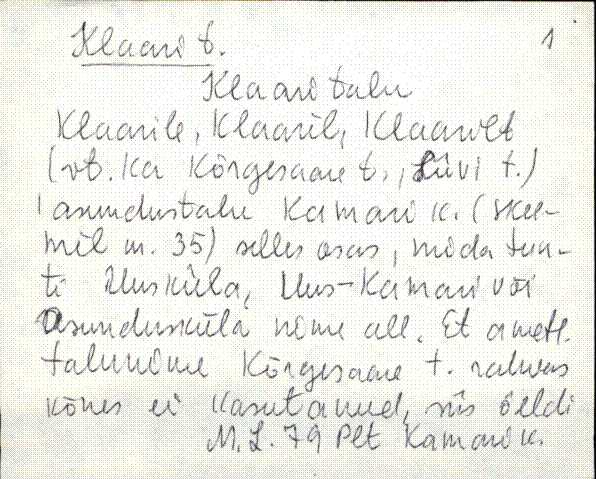 Klaari t. 1
Klaari talu
Klaarile, Klaaril, Klaarilt
(vt. ka Kõrgesaare t., Liivi t.)
asundustalu Kamari k. (skee-
mil nr. 35) selles osas, mida tun-
ti Uusküla, Uus-Kamari või
Asundusküla nime all. Et ametl.
talunime Kõrgesaare t. rahvas
kõnes ei kasutanud, siis öeldi
M. L. 79 Plt Kamari k.